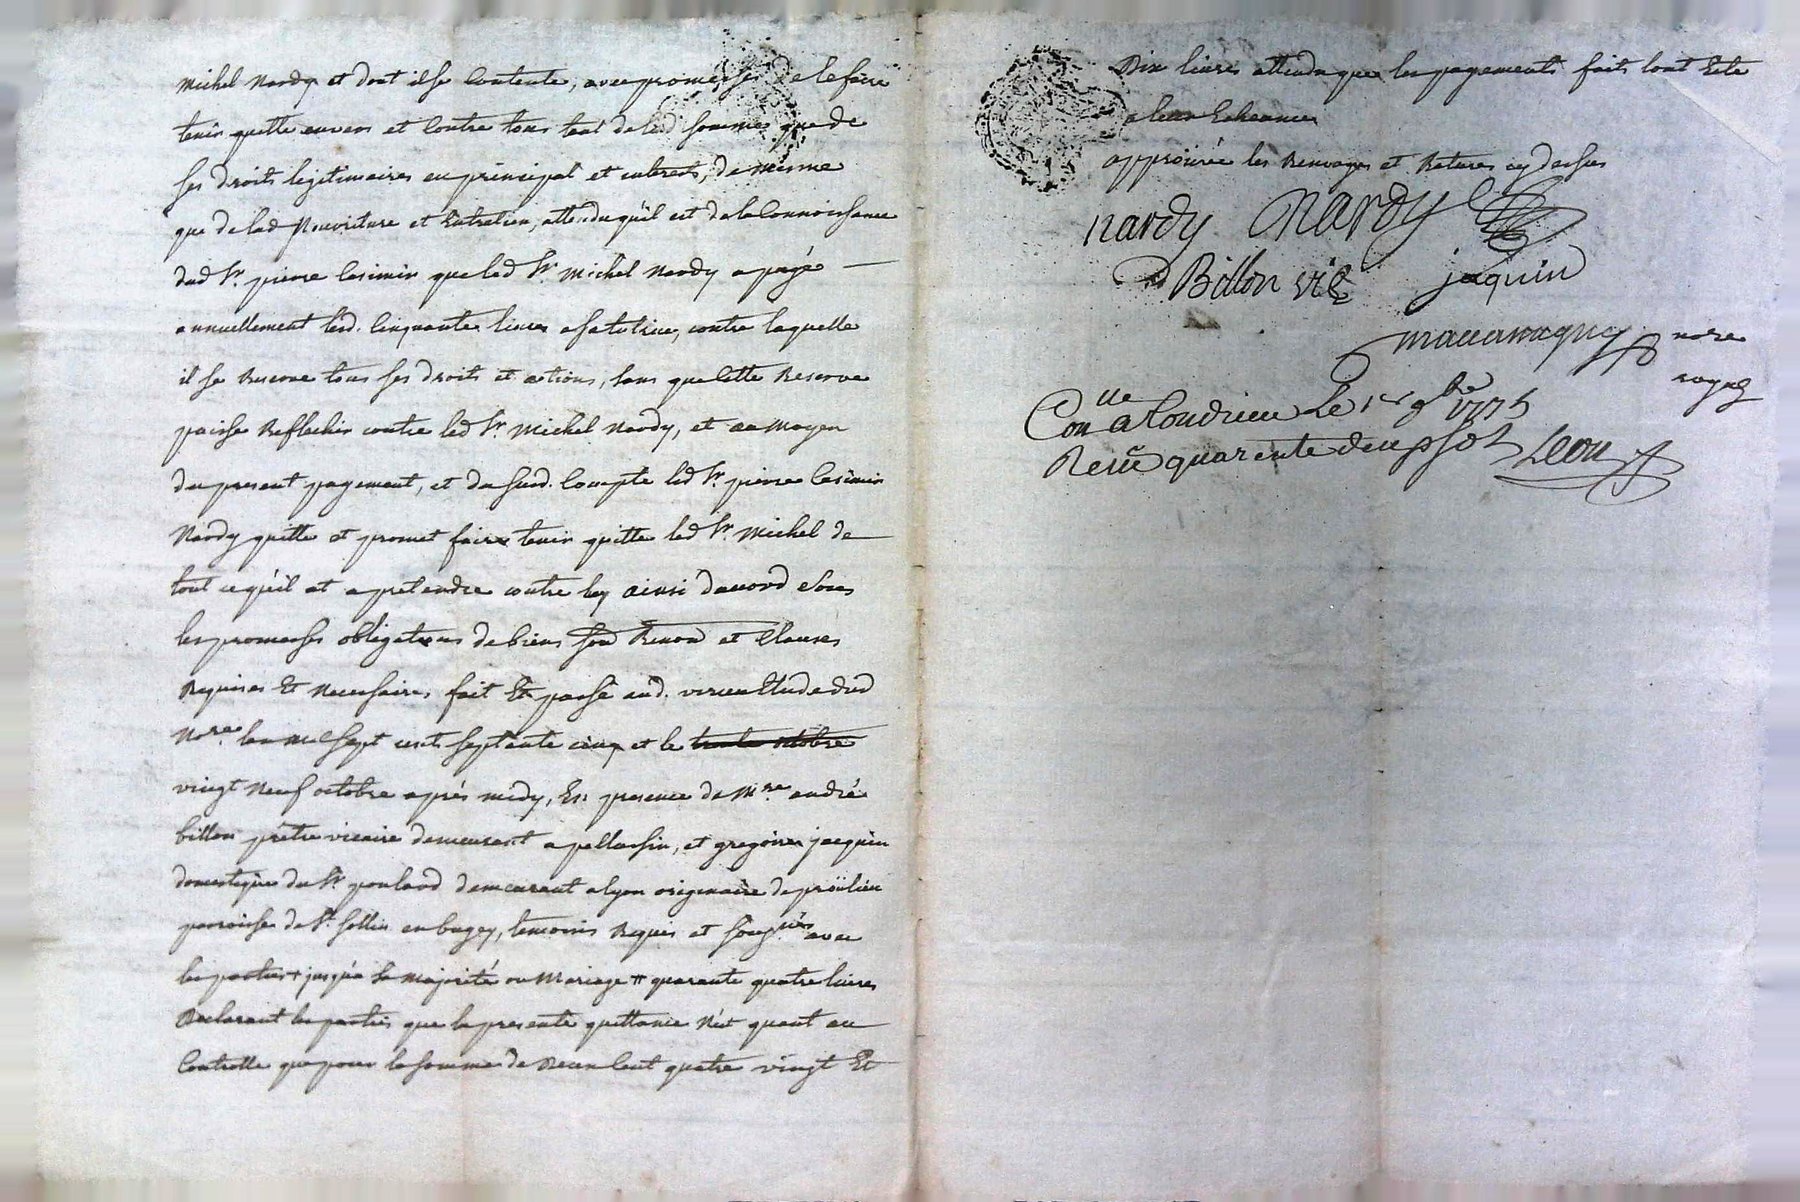 Michel Nardy et dont il se Contente, avec promesses de le faire
tenir quitte envers et Contre tous tant de lad. sommes que de
ses droits legitimaires en principal et interets, de même
que de lad Nourriture et Entretien, attendu qu'il est de la Connoissance
dud Sr. pierre Casimir que led Sr Michel Nardy a payé
annuellement lesd. Cinquante livres a sa tutrice, contre laquelle
il se Reserve tous ses droits et actions, sans que Cette Reserve
puisse Reflechir contre led Sr Michel Nardy, et au Moyen
du present payement, et du susd. Compte led Sr. pierre Casimir
Nardy quitte et promet faire tenir quitte led Sr. Michel de
tout ce qu'il at a pretendre contre luy ainsi d'acord sous
les promesses obligations de biens Renon et Clauses
Requises Et Necessaires, fait Et passé aud. Etude dud
Nore. lan mil sept cent septante cinq et le trente octobre
vingt Neuf octobre après midy, En presence de Mre andré
billon prêtre vicaire demeurant a pellussin, et gregoire jacquin
domestique du Sr. poulard demeurant a lyon originaire de pröülieu
paroisse de St. Sollin en bugey, temoins Requis et soussignés avec
les parties + jusqu'a sa Majorité ou Mariage # quarante quatre livres
Declarant les parties que la presente quittance N'est quant au
Controlle que pour la somme de Deux Cent quatre vingt Et
Dix livres attendu que les payements faits sont Eté
a leur Echeance
approüvée les Renvoyes et Ratures cy dessus
nardy Nardy
Billon vic jaquin
nore
royal
Conlle a Condrieu Le 1er 9bre 1775
Receu quarente deux sols Leon